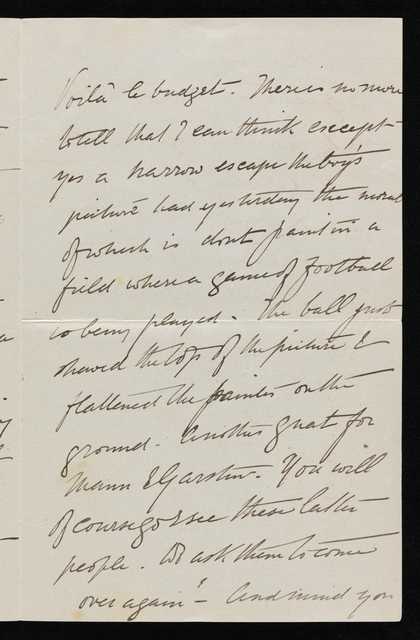 Voilà le budget. There is no more
to tell that I can think except
yes a narrow escape the boy's
picture had yesterday the moral
of which is dont paint in a
field where a game of football
is being played. The ball just
shaved the top of the picture &
flattened the painter on the
ground. Another for
Mann & Garstin. You will
of course go & see these latter
people. Do ask them to come
over again! – And mind you